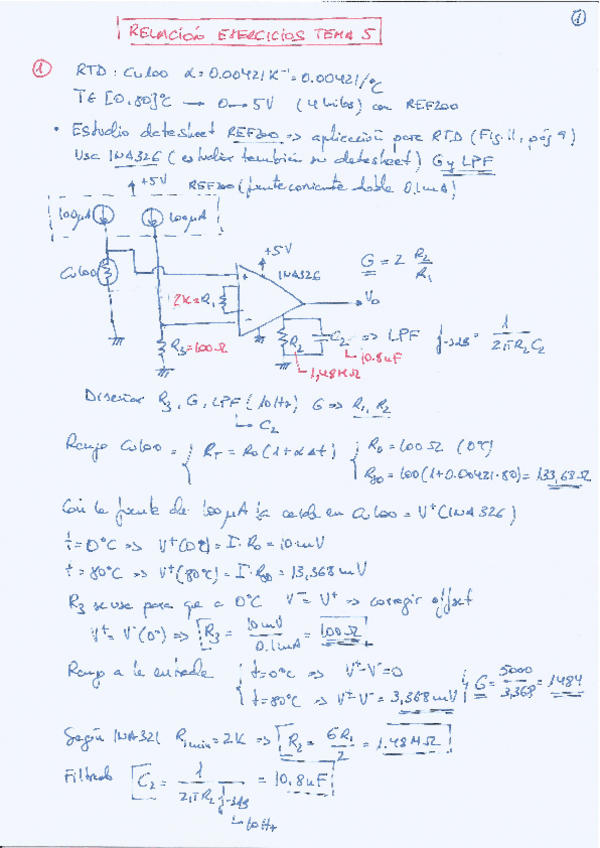 1
RELACIÓN EJERCICIOS TEMA 5
1 RTD: Cu100 α = 0.00421 K⁻¹ = 0.00421/ºC
T ∈ [0,80]ºC → 0→5V (4 hilos) con REF200
• Estudio datasheet REF200 => aplicación para RTD (Fig. 11, pág 9)
Usa INA326 (estudiar también su datasheet) G y LPF
+5V REF200 (fuente corriente doble 0.1mA)
100µA 100µA
+5V
Cu100 INA326 G = 2 R2/R1
2K=R1 Vo
R3=100Ω R2 C2 => LPF f-3dB = 1/2πR2C2
10.8uF
1,48MΩ
Diseñar R3, G, LPF (10Hz) G => R1, R2
↳ C2
Rango Cu100 = { RT = Ro(1+αΔt) { Ro = 100Ω (0ºC)
R80 = 100(1+0.00421·80) = 133,68Ω
Con la fuente de 100µA la caída en Cu100 = V⁺(INA326)
t=0ºC => V⁺(0ºC) = I·Ro = 10mV
t=80ºC => V⁺(80ºC) = I·R80 = 13,368mV
R3 se usa para que a 0ºC V⁻=V⁺ => corregir offset
V⁺=V⁻(0º) => R3 = 10mV/0.1mA = 100Ω
Rango a la entrada { t=0ºC => V⁺-V⁻=0
t=80ºC => V⁺-V⁻ = 3,368mV } G = 5000/3,368 = 1484
Según INA321 R1min=2K => R2 = GR1/2 = 1.48MΩ
Filtrado C2 = 1/2πR2f-3dB = 10,8uF
↳ 10Hz